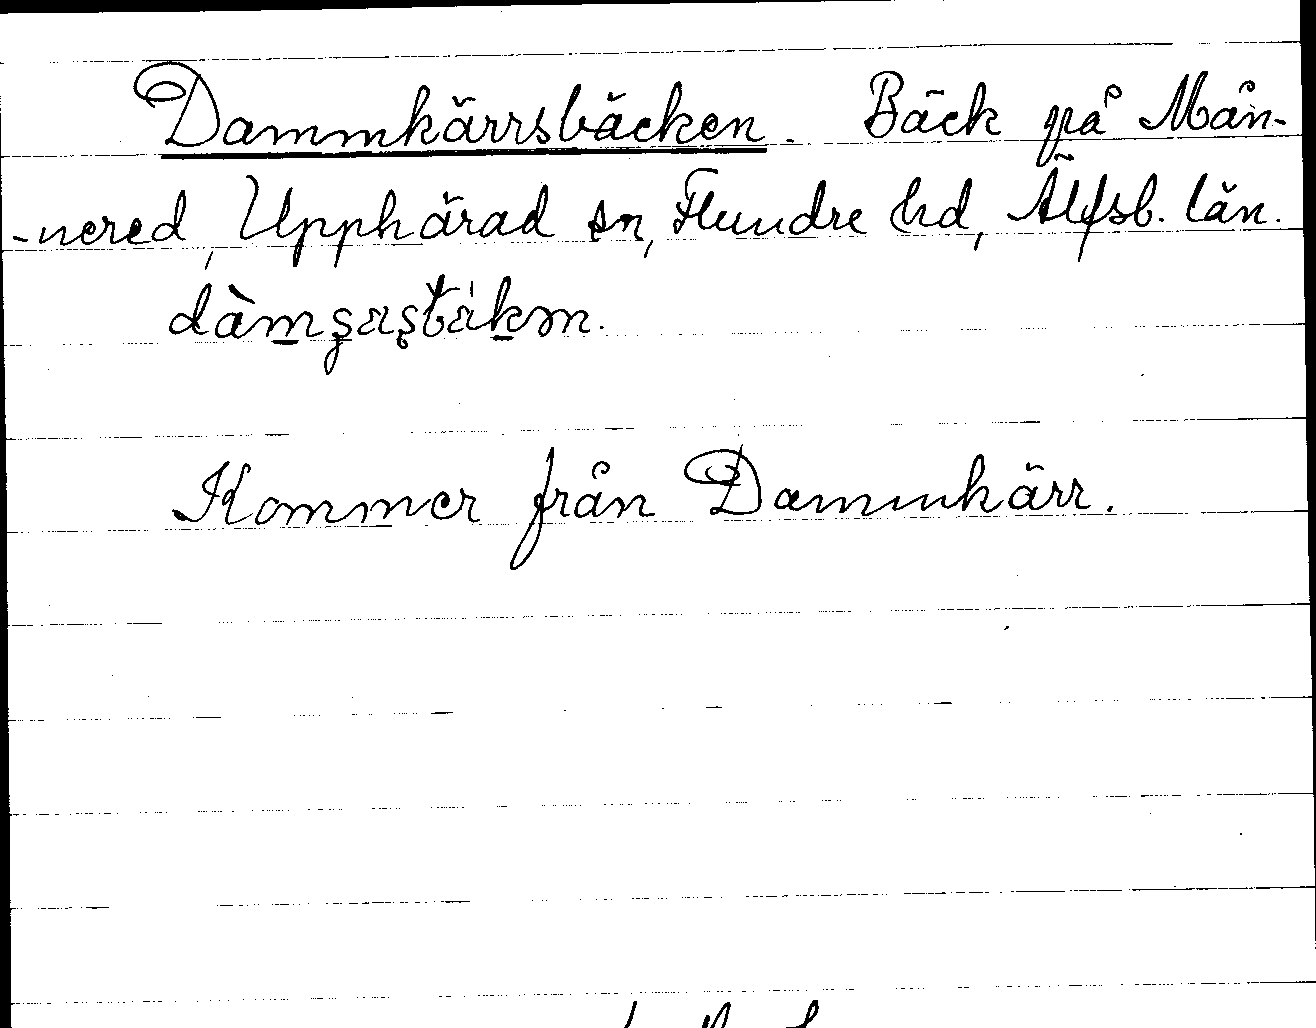 Dammkärrsbäcken. Bäck på Mån-
-nered, Upphärad sn, Flundre hd, Älfsb. län.
Kommer från Dammkärr.